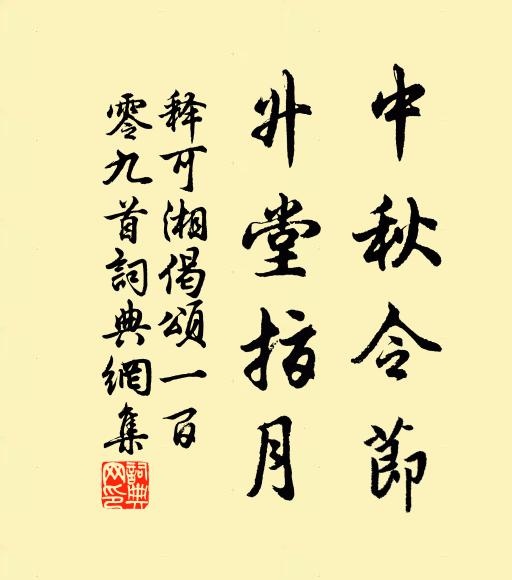 中秋令節
升堂指月
释可湘偈頌一百
零九首詞典網集
詞典网印